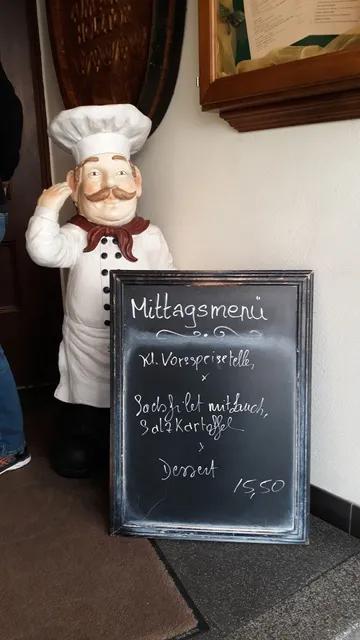 Mittagsmenü
Kl. Vorspeiseteller,
x
mit Lauch,
Salzkartoffel
Dessert
15,50